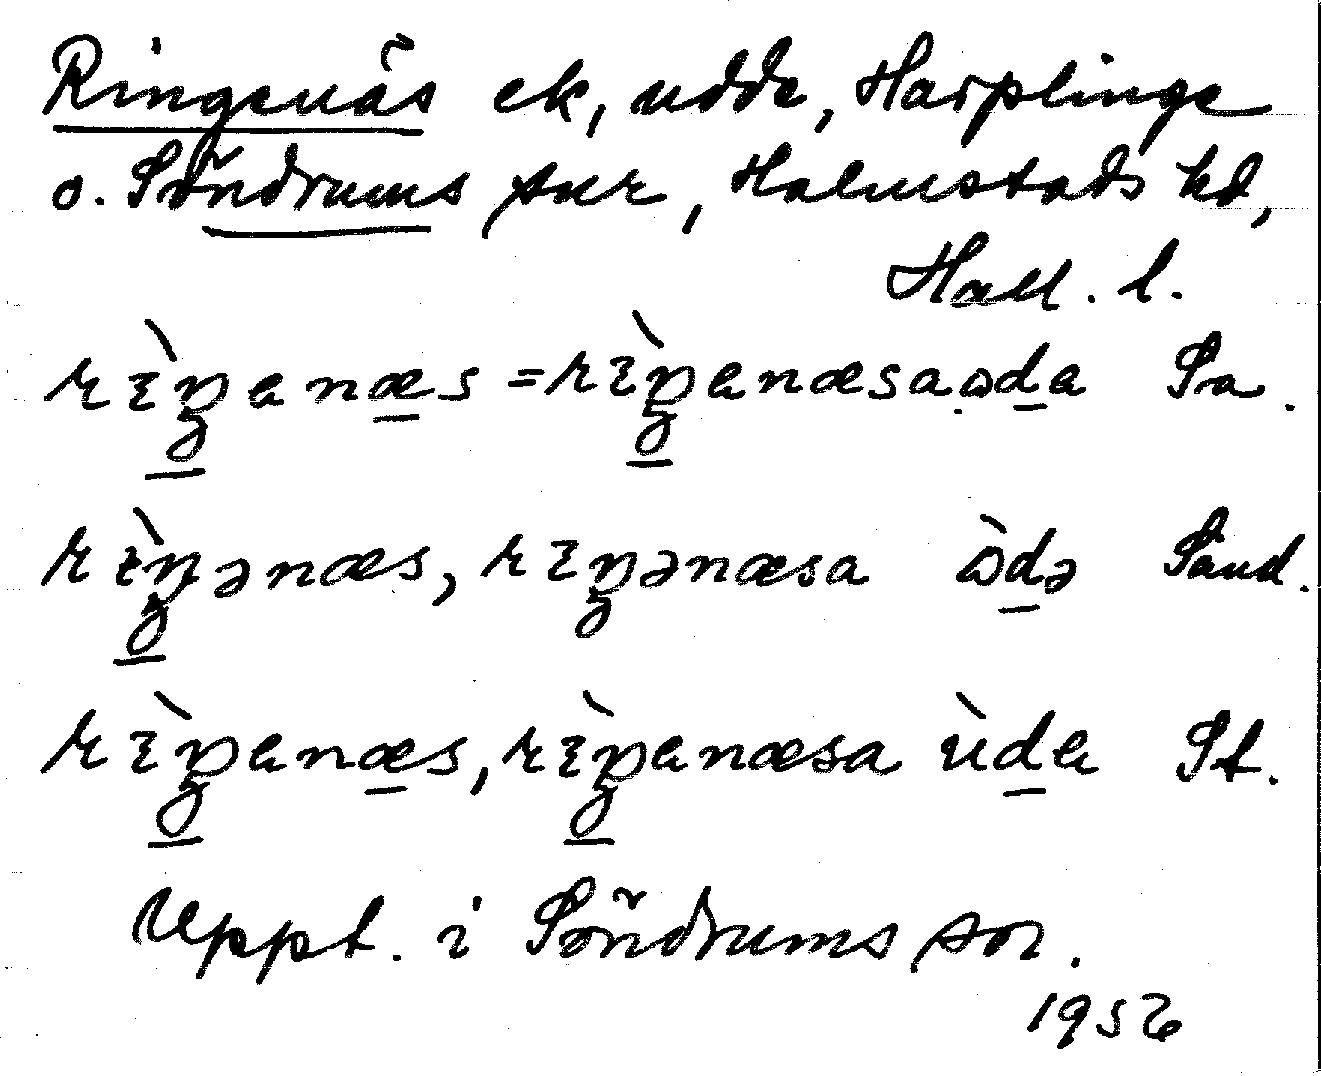 Ringenäs ek, udde, Harplinge
o. Söndrums skr, Halmstads hd,
Hall. l.
rɪ̀ŋenæs = rɪ̀ŋenæsaɷde Sa.
rɪ̀ŋənæs, rɪŋənæsa ɷ̀də Sand.
rɪ̀ŋenæs, rɪ̀ŋenæsa ùde St.
Uppt. i Söndrums sn.
1956